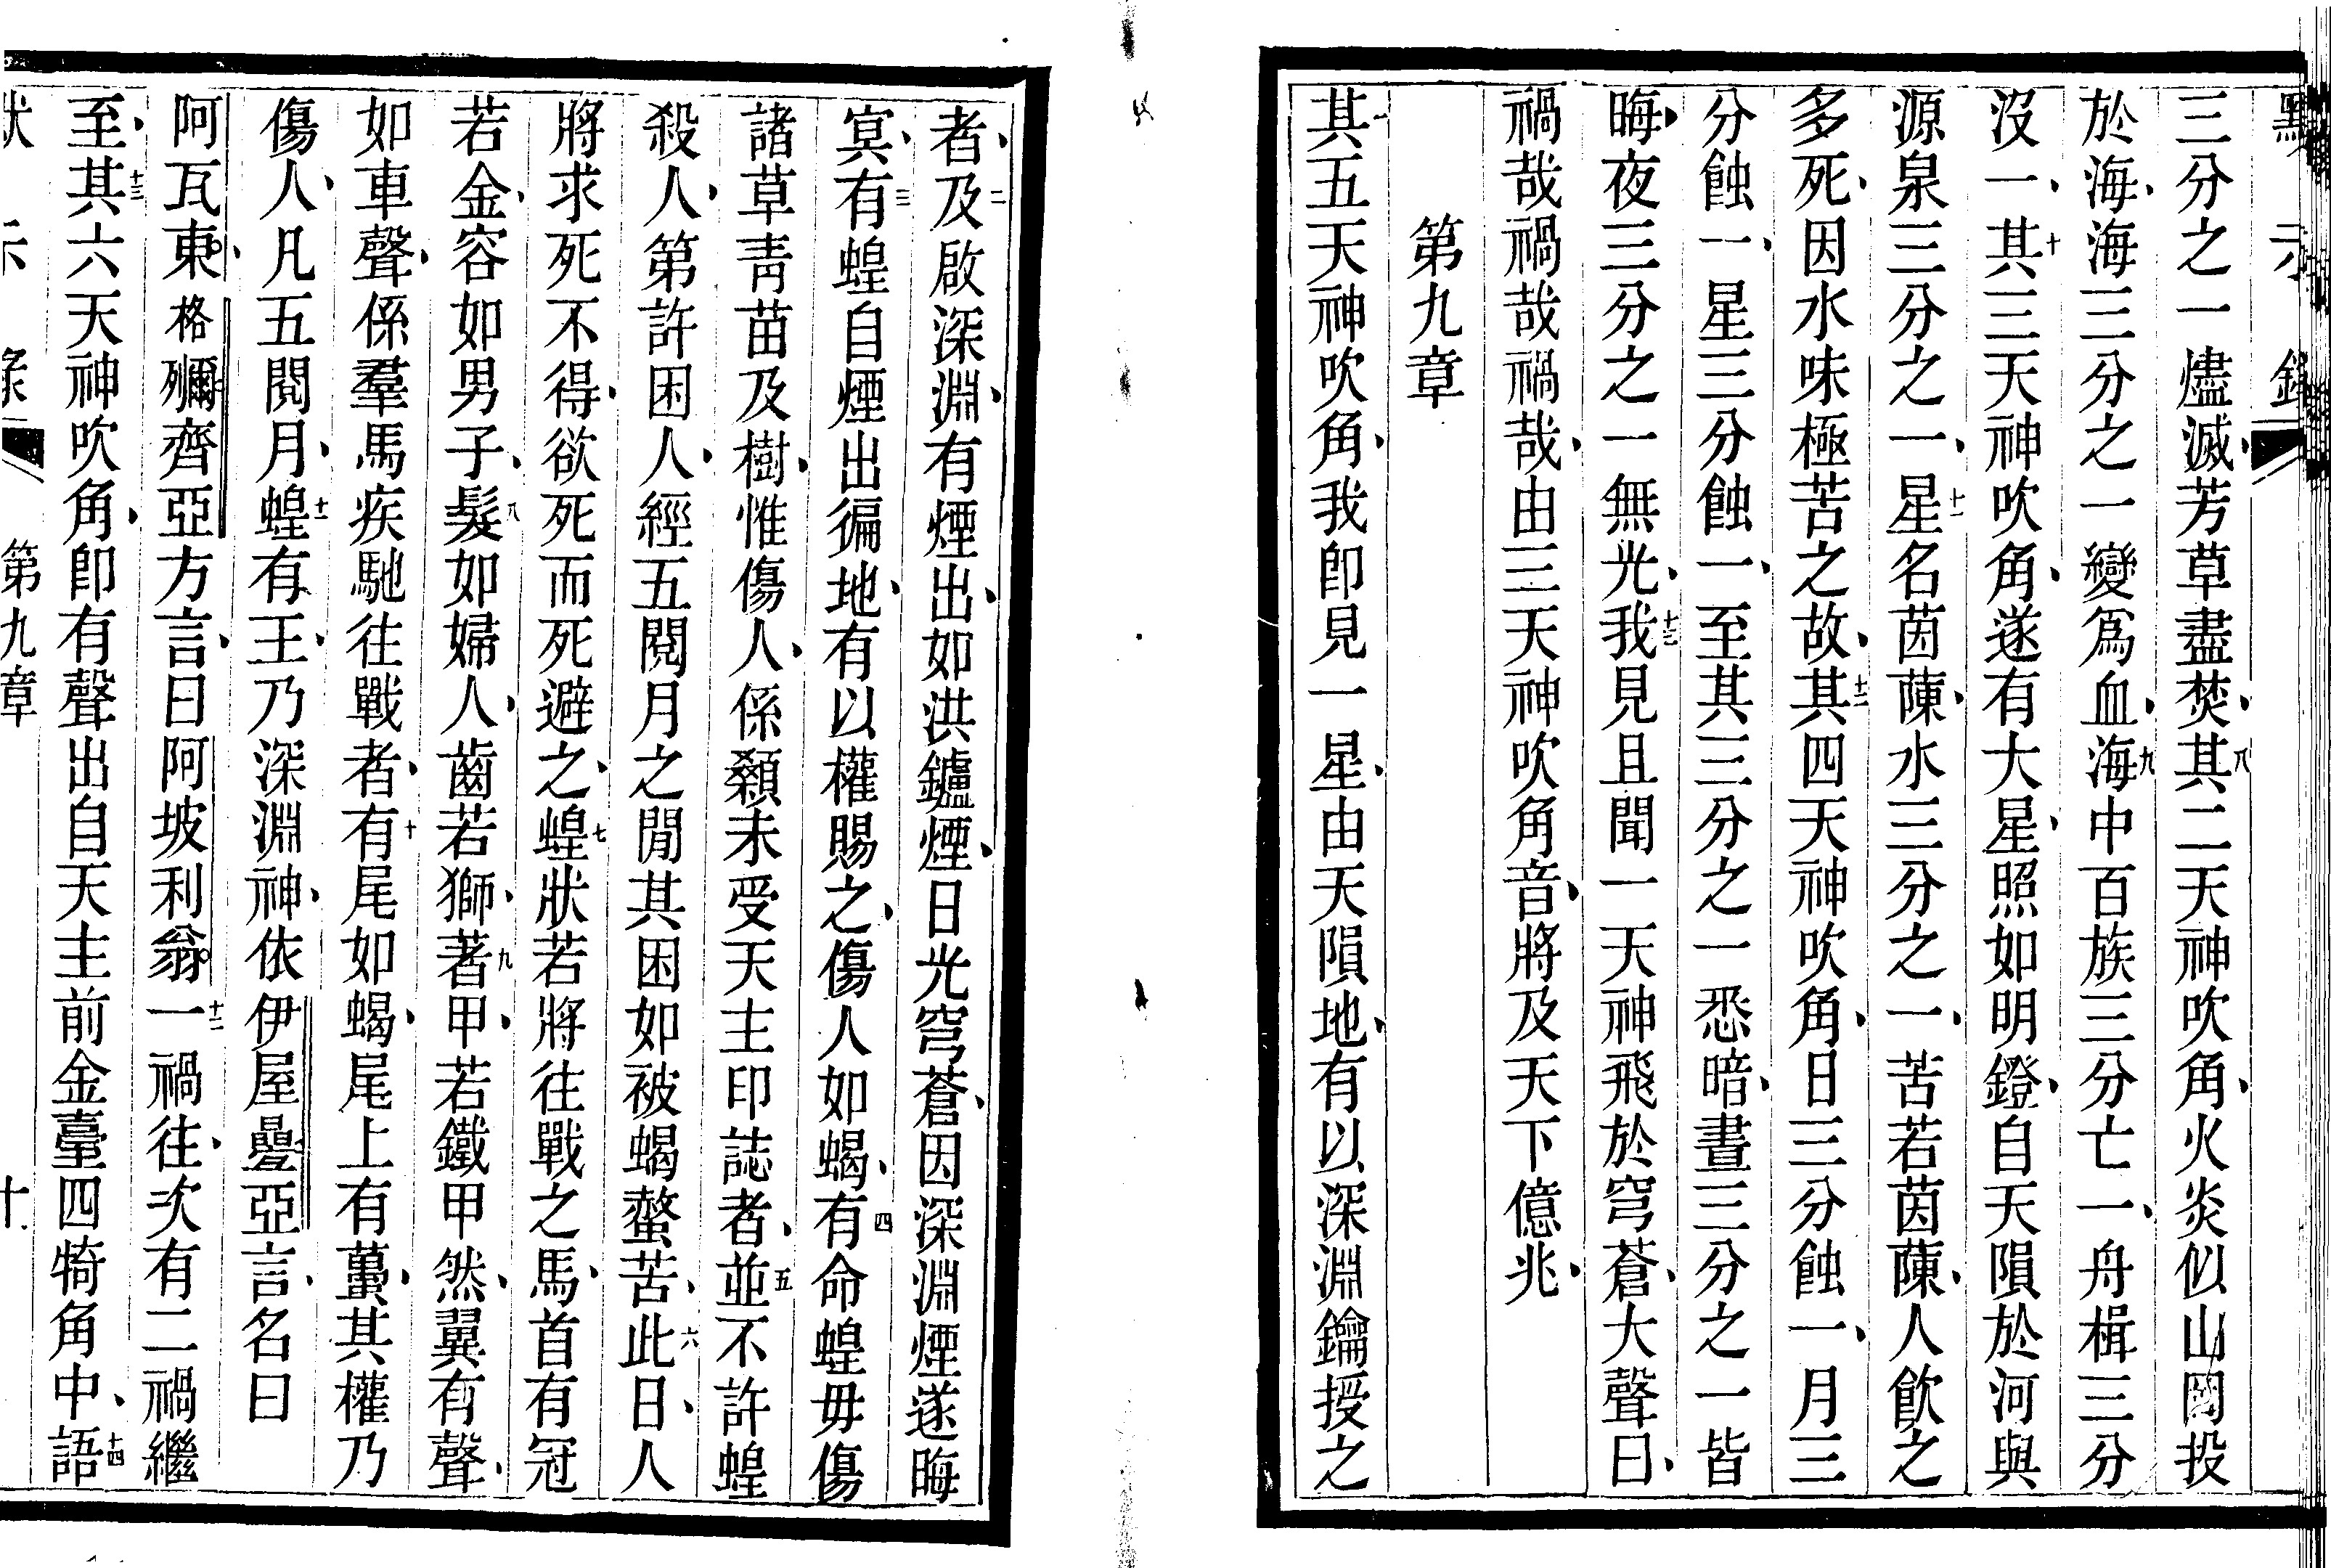 默示錄
三分之一燼滅、芳草盡焚、八其二天神吹角、火炎似山岡投
於海、海三分之一變爲血、九海中百族三分亡一、舟楫三分
沒一、十其三天神吹角、遂有大星、照如明鐙、自天隕於河與
源泉三分之一、十一星名茵蔯、水三分之一、苦若茵蔯、人飲之
多死、因水味極苦之故、十二其四天神吹角、日三分蝕一、月三
分蝕一、星三分蝕一、至其三分之一悉暗、晝三分之一皆
晦、夜三分之一無光、十三我見且聞一天神飛於穹蒼、大聲曰、
禍哉禍哉禍哉、由三天神吹角音、將及天下億兆、
第九章
一其五天神吹角、我卽見一星、由天隕地、有以深淵鑰授之
者、二及啟深淵、有煙出、如洪鑪煙、日光穹蒼、因深淵煙遂晦
冥、三有蝗自煙出徧地、有以權賜之、傷人如蝎、四有命蝗毋傷
諸草靑苗及樹、惟傷人、係顙未受天主印誌者、五並不許蝗
殺人、第許困人、經五閱月之閒、其困如被蝎螫苦、六此日、人
將求死不得、欲死而死避之、七蝗狀若將往戰之馬、首有冠
若金、容如男子、八髮如婦人、齒若獅、九著甲、若鐵甲然、翼有聲、
如車聲、係羣馬疾馳往戰者、十有尾如蝎、尾上有蠆、其權乃
傷人、凡五閱月、十一蝗有王、乃深淵神、依伊屋疊亞言、名曰
阿瓦東、格彌齊亞方言、曰阿坡利翁、十二一禍往、次有二禍繼
至、十三其六天神吹角、卽有聲出自天主前金臺四犄角中、十四語
默示錄 第九章 十